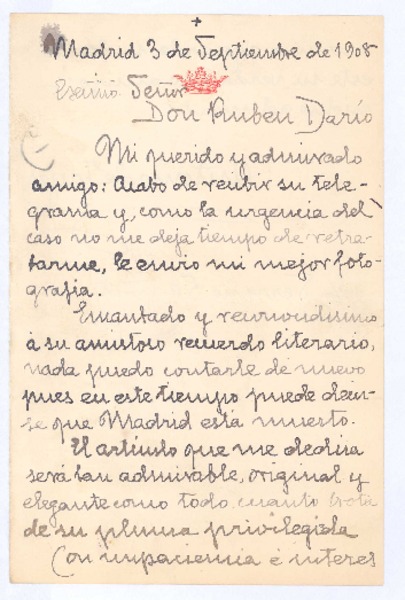 +
Madrid 3 de Septiembre de 1908
Exc̃mo Señor
Don Ruben Darío
Mi querido y admirado
amigo: Acabo de recibir su tele-
grama y, como la urgencia del
caso no me deja tiempo de retra-
tarme, le envio mi mejor foto-
grafia.
Encantado y reconocidisimo
á su amistoso recuerdo literario,
nada puedo contarle de nuevo
pues en este tiempo puede decir-
se que Madrid está muerto.
El artículo que me dedica
será tan admirable, original y
elegante como todo cuanto brota
de su pluma privilegiada
Con impaciencia é interes